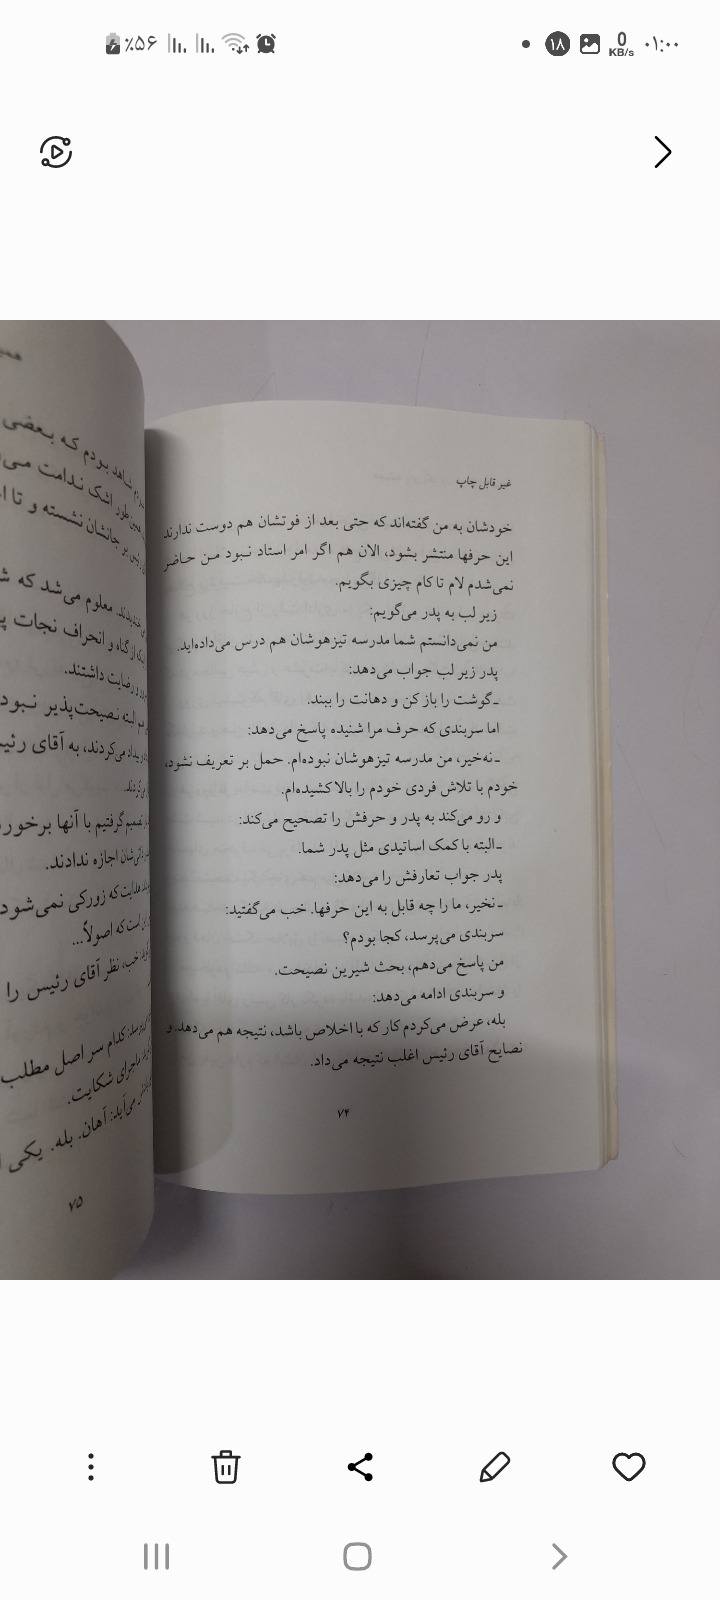 ٪۵۶
۱۸
0
KB/s
۰۱:۰۰
غیر قابل چاپ
خودشان به من گفته‌اند که حتی بعد از فوتشان هم دوست ندارند
این حرفها منتشر بشود، الان هم اگر امر استاد نبود من حاضر
نمی‌شدم لام تا کام چیزی بگویم.
زیر لب به پدر می‌گویم:
من نمی‌دانستم شما مدرسه تیزهوشان هم درس می‌داده‌اید.
پدر زیر لب جواب می‌دهد:
ـ گوشت را باز کن و دهانت را ببند.
اما سربندی که حرف مرا شنیده پاسخ می‌دهد:
ـ نه‌خیر، من مدرسه تیزهوشان نبوده‌ام. حمل بر تعریف نشود،
خودم با تلاش فردی خودم را بالا کشیده‌ام.
و رو می‌کند به پدر و حرفش را تصحیح می‌کند:
ـ البته با کمک اساتیدی مثل پدر شما.
پدر جواب تعارفش را می‌دهد:
ـ نخیر، ما را چه قابل به این حرفها. خب می‌گفتید:
سربندی می‌پرسد، کجا بودم؟
من پاسخ می‌دهم، بحث شیرین نصیحت.
و سربندی ادامه می‌دهد:
بله، عرض می‌کردم کار که با اخلاص باشد، نتیجه هم می‌دهد. و
نصایح آقای رئیس اغلب نتیجه می‌داد.
۷۴
شاهد بودم که بعضی
طور اشک ندامت
جانشان نشسته و تا
معلوم می‌شد که
از گناه و انحراف نجات
و رضایت داشتند.
البته نصیحت‌پذیر نبود
می‌کردند، به آقای
تصمیم گرفتیم با آنها
اجازه ندادند.
هدایت که زورکی نمی‌شود
است که اصولاً...
خب، نظر آقای رئیس را
کدام سر اصل مطلب
ماجرای شکایت.
می‌آید: آهان. بله. یکی
۷۵